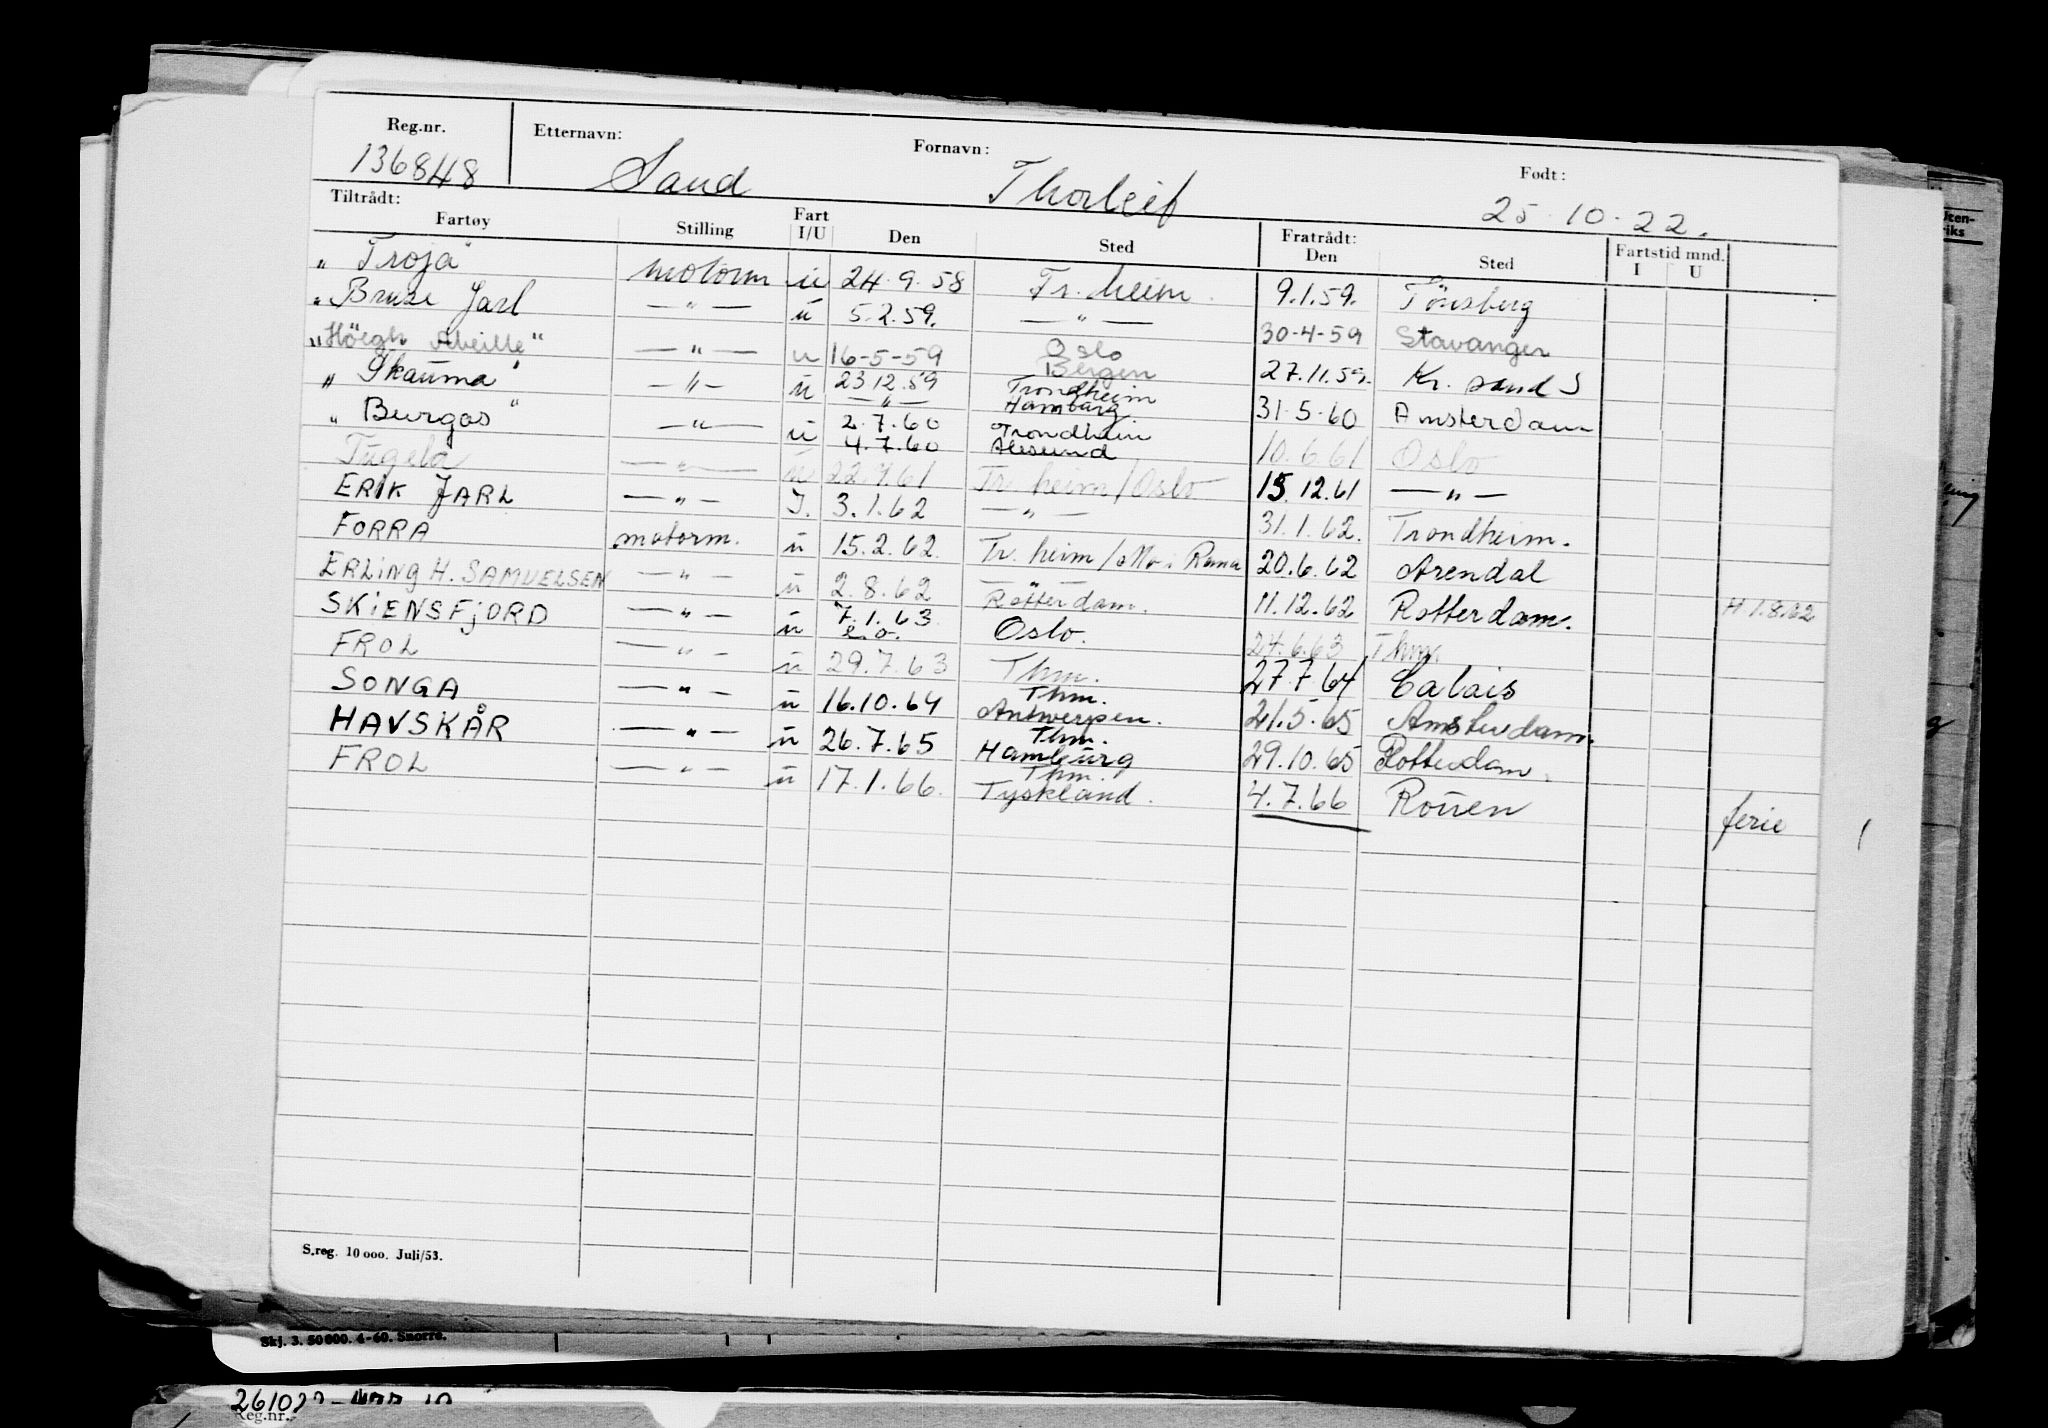 Reg.nr. Etternavn: Fornavn: Født:
136848 Sand Thorleif 25.10.22.
Tiltrådt: Fratrådt: Fartstid mnd.
Fartøy Stilling Fart I/U Den Sted Den Sted I U
"Troja" motorm u 24.9.58 Tr.heim. 9.1.59. Tönsberg
"Bruse Jarl — " — u 5.2.59. — " — 30-4-59 Stavanger
"Höegh Abeille" — " — u 16-5-59 Oslo Bergen 27.11.59. Kr. sand S
"Skauma" — " — u 23.12.59 — " — Trondheim Hamburg 31.5.60 Amsterdam
"Burgos" — " — u 2.7.60 4.7.60 Trondheim Ålesund 10.6.61 Oslo
Tugela — " — u 22.7.61 Tr.heim/Oslo 15.12.61 — " —
ERIK JARL — " — I. 3.1.62 — " — 31.1.62. Trondheim.
FORRA motorm. u 15.2.62. Tr.heim/Mo i Rana 20.6.62 Arendal
ERLING H. SAMUELSEN — " — u 2.8.62 — " — Rotterdam. 11.12.62 Rotterdam. H 1.8.62
SKIENSFJORD — " — u 7.1.63 e.o. Oslo. 24.6.63 Thm.
FROL — " — u 29.7.63 Thm. 27.7.64 Calais
SONGA — " — u 16.10.64 Thm. Antwerpen. 21.5.65 Amsterdam.
HAVSKÅR — " — u 26.7.65 Thm. Hamburg 29.10.65 Rotterdam.
FROL — " — u 17.1.66. Thm. Tyskland. 4.7.66 Rouen ferie
S.reg. 10 000. Juli/53.
Skj. 3. 50 000. 4-60. Snorre.
Reg.nr.